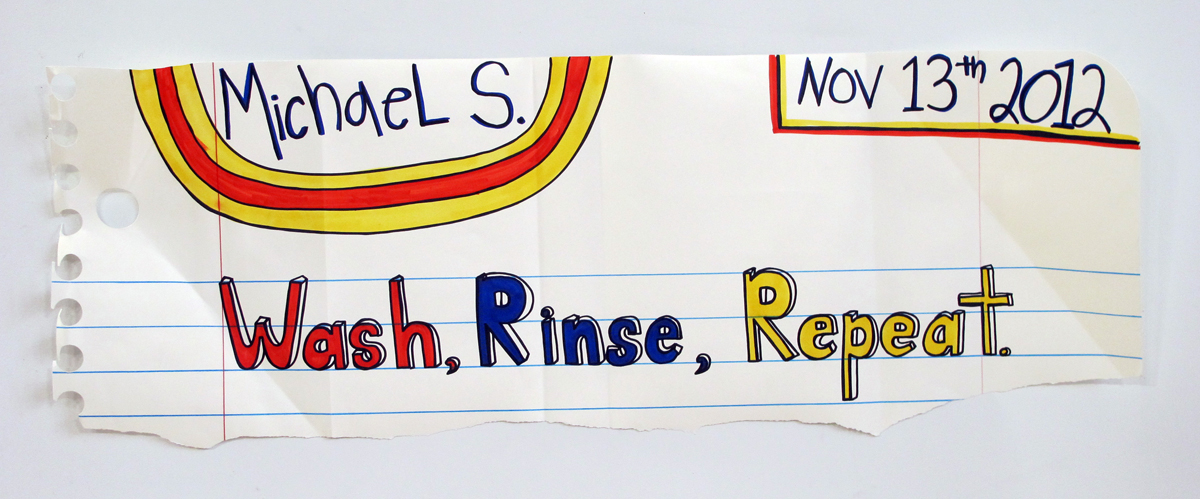 MichaeL S.
Nov 13th 2012
Wash, Rinse, Repeat.